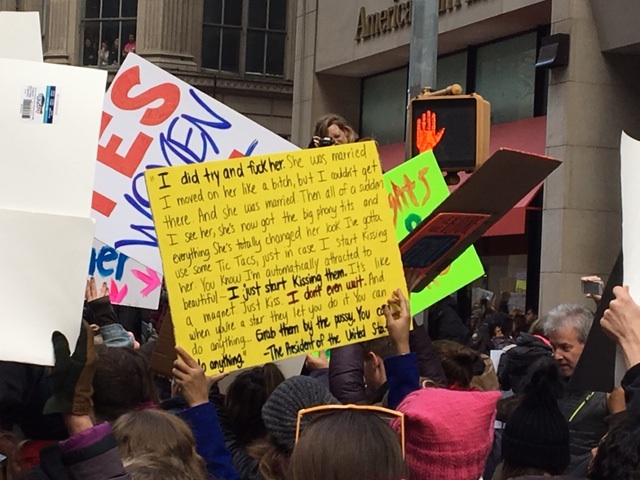 American
YES
WOMEN
I did try and fuck her. She was married.
I moved on her like a bitch, but I couldn't get
there And she was married Then all of a sudden
I see her, she's now got the big phony tits and
everything She's totally changed her look I've gotta
use some Tic Tacs, just in case I start Kissing
her You Know I'm automatically attracted to
beautiful—I just start Kissing them. It's like
a magnet Just Kiss. I don't even wait. And
when you're a star they let you do it You can
do anything... Grab them by the pussy. You can
do anything."
-The President of the United States
ghts
her